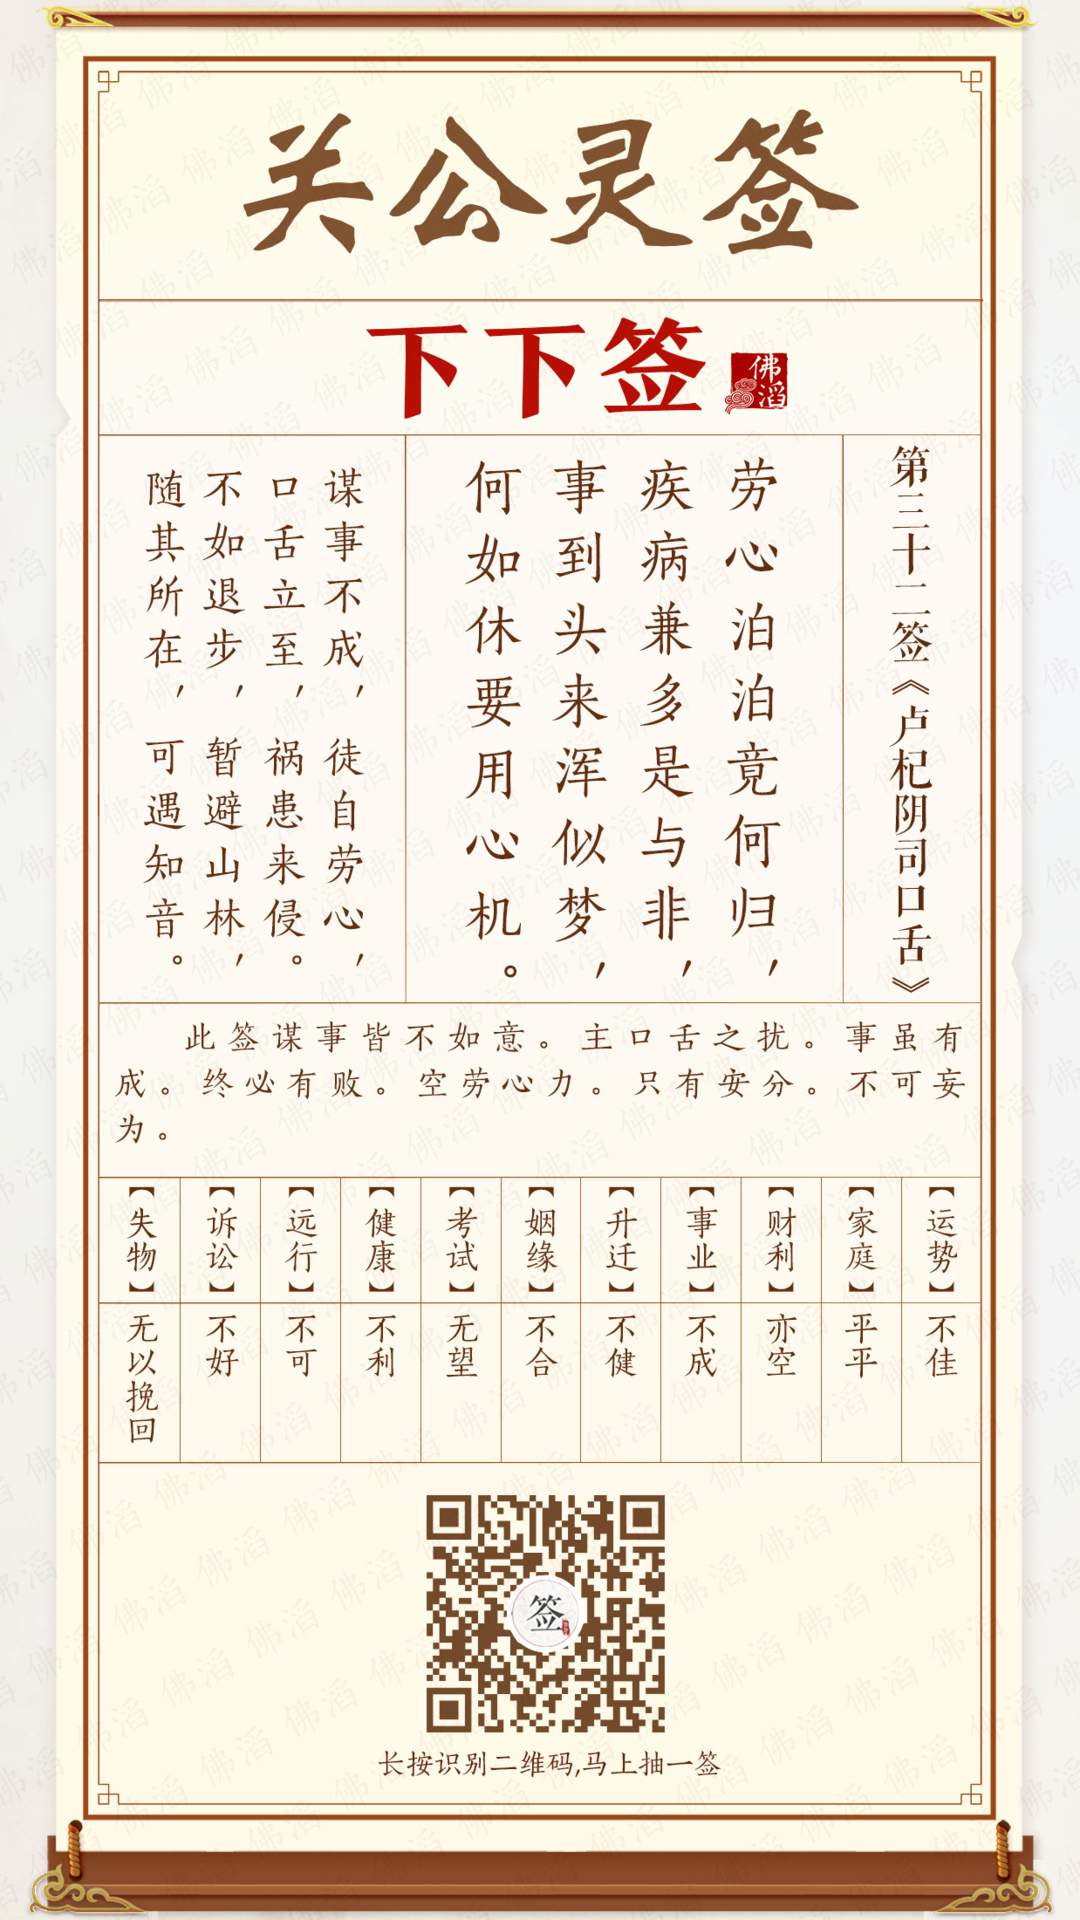 关公灵签
下下签
佛滔
第三十二签《卢杞阴司口舌》
劳心泊泊竟何归，
疾病兼多是与非，
事到头来浑似梦，
何如休要用心机。
谋事不成，徒自劳心，
口舌立至，祸患来侵。
不如退步，暂避山林，
随其所在，可遇知音。
此签谋事皆不如意。主口舌之扰。事虽有
成。终必有败。空劳心力。只有安分。不可妄
为。
【运势】
不佳
【家庭】
平平
【财利】
亦空
【事业】
不成
【升迁】
不健
【姻缘】
不合
【考试】
无望
【健康】
不利
【远行】
不可
【诉讼】
不好
【失物】
无以挽回
签
长按识别二维码,马上抽一签